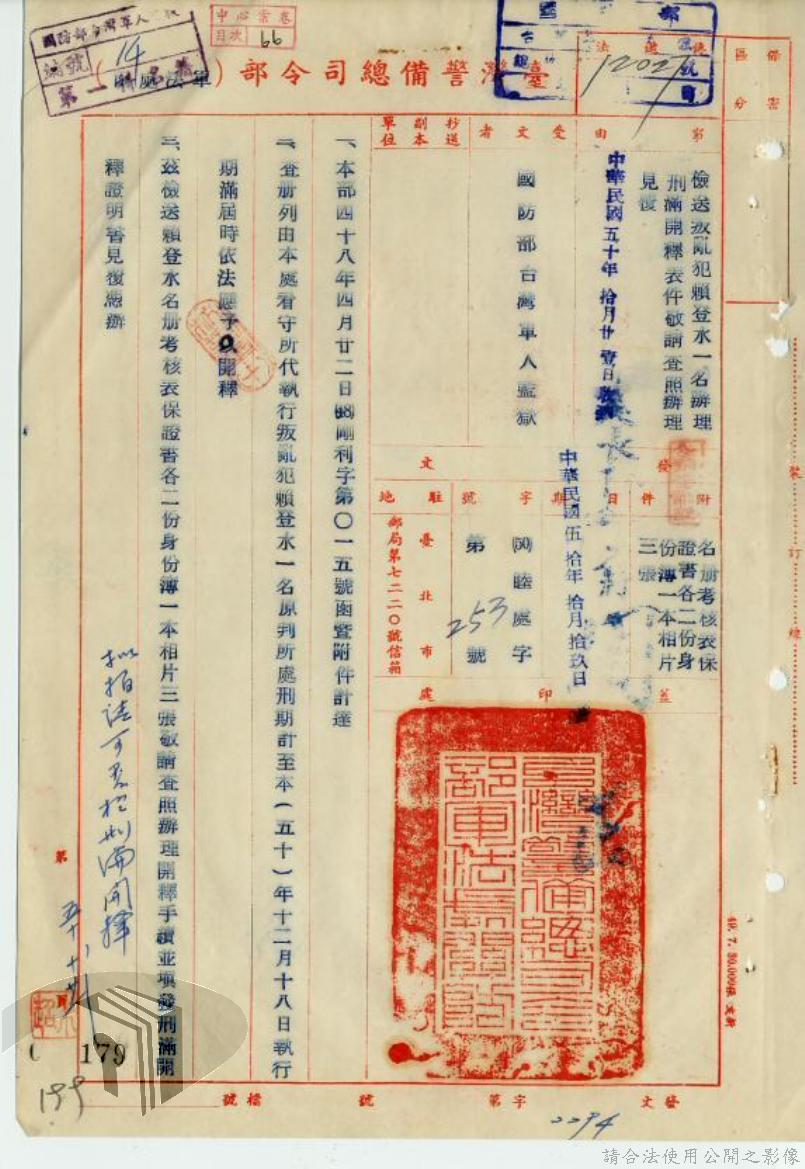 臺灣警備總司令部(軍法處
國防部台灣軍人監獄
編號
14
中心案卷
目次 66
保密
區分
12027
事由
檢送叛亂犯賴登水一名辦理
刑滿開釋表件敬請查照辦理
見復
中華民國五十年 拾月廿壹日
受文者
國防部台灣軍人監獄
抄送副本單位
附件
名册考核表保
證書各二份身
份簿一本相片
三張
發文
日期
中華民國伍拾年拾月拾玖日
字號
(50)睦處字
第 253 號
駐地
臺北市
郵局第七二二〇號信箱
蓋印處
臺灣警備總司令部軍法處關防
一、本部四十八年四月廿二日(48)剛利字第〇一五號函暨附件計達
二、查册列由本處看守所代執行叛亂犯賴登水一名原判所處刑期計至本(五十)年十二月十八日執行
期滿屆時依法應予以開釋
三、茲檢送賴登水名册考核表保證書各二份身份簿一本相片三張敬請查照辦理開釋手續並填發刑滿開
釋證明書見復憑辦
第
頁
179
199
裝訂線
發文 字第 號 檔號
2294
請合法使用公開之影像